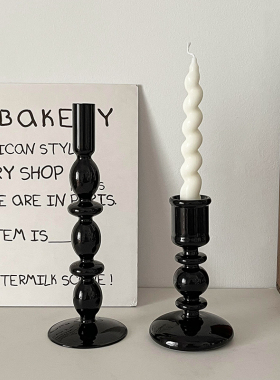 BAKERY
ICAN STYL
RY SHOP
E ARE IN PARIS.
TEM IS
TERMILK SCONE!